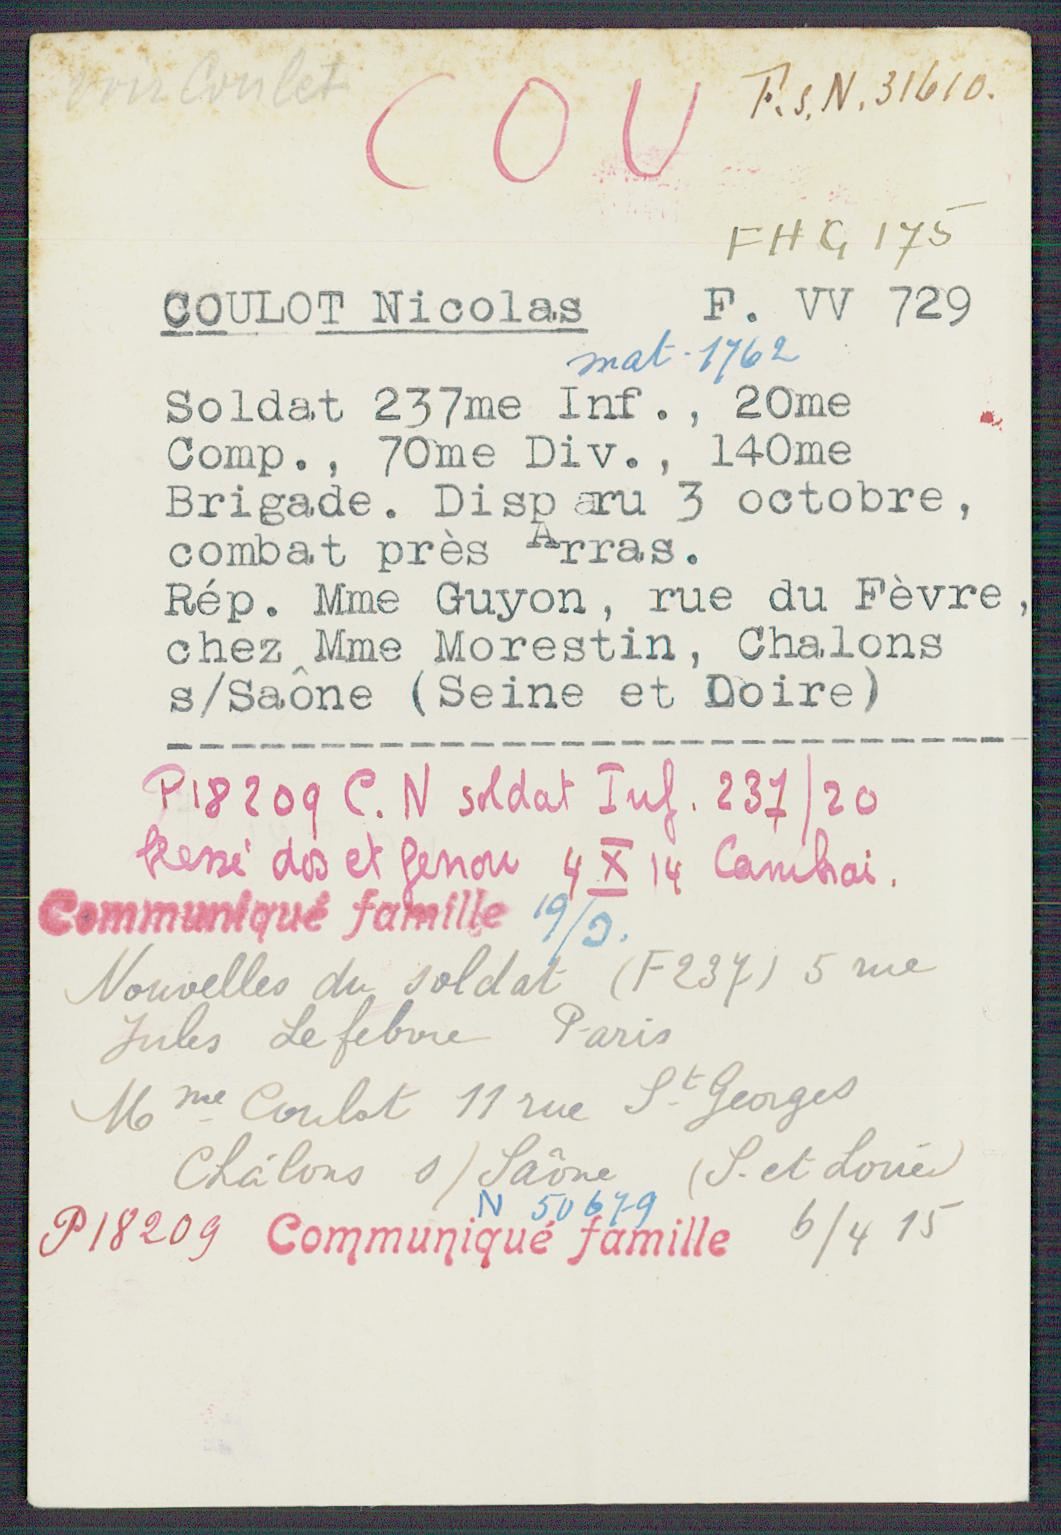 voir Coulet
COU
F.s.N.31610.
FHG 175
COULOT Nicolas F. VV 729
mat. 1762
Soldat 237me Inf., 20me
Comp., 70me Div., 140me
Brigade. Disparu 3 octobre,
combat près Arras.
Rép. Mme Guyon, rue du Fèvre,
chez Mme Morestin, Chalons
s/Saône (Seine et Doire)
P18209 C. N soldat Inf. 237/20
dos et genou 4 X 14 Cambrai.
Communiqué famille 19/
Nouvelles du soldat (F237) 5 rue
Jules Lefebvre Paris
Mme Coulot 11 rue St Georges
Châlons s/Saône (S. et Loire)
N 50679
P18209 Communiqué famille 6/4 15